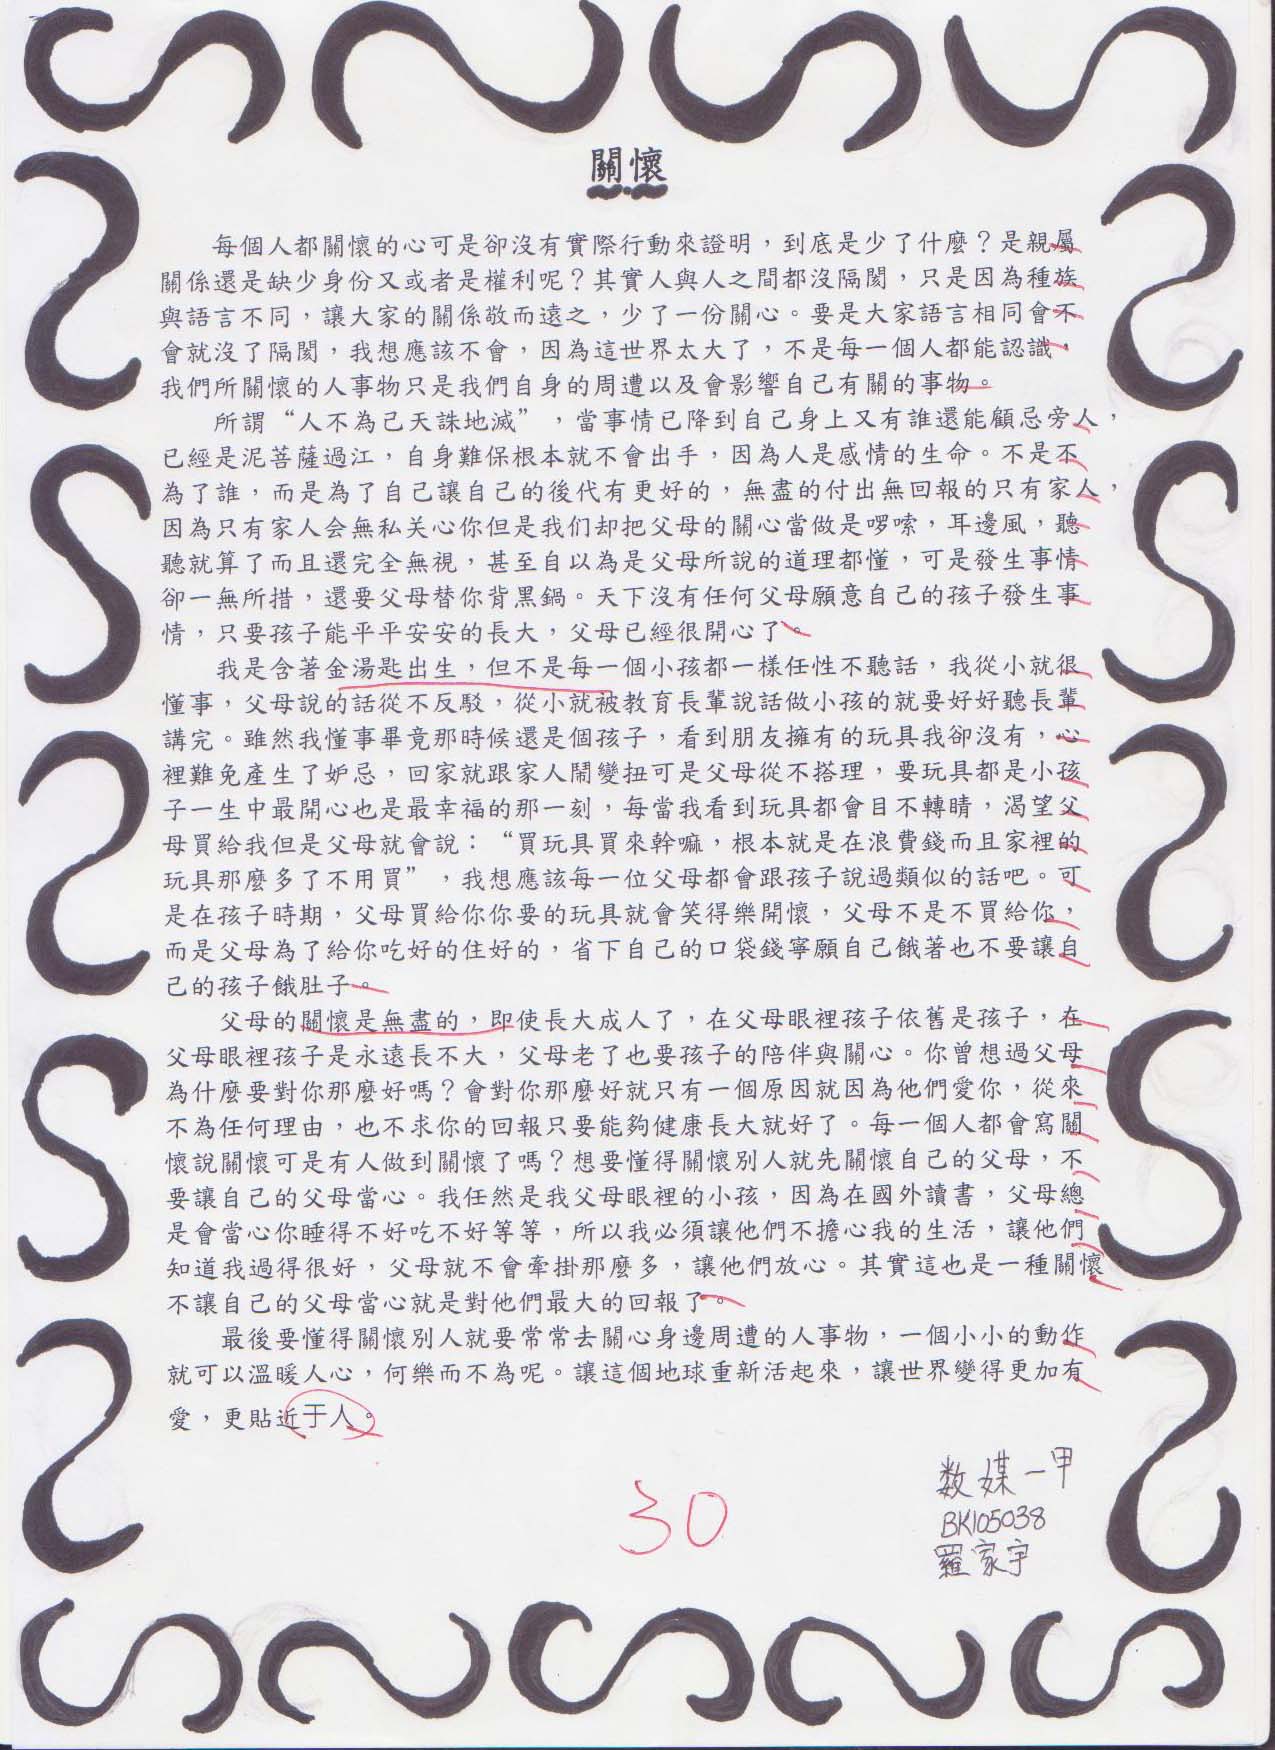 關懷
每個人都關懷的心可是卻沒有實際行動來證明，到底是少了什麼？是親屬
關係還是缺少身份又或者是權利呢？其實人與人之間都沒隔閡，只是因為種族
與語言不同，讓大家的關係敬而遠之，少了一份關心。要是大家語言相同會不
會就沒了隔閡，我想應該不會，因為這世界太大了，不是每一個人都能認識，
我們所關懷的人事物只是我們自身的周遭以及會影響自己有關的事物。
所謂“人不為己天誅地滅”，當事情已降到自己身上又有誰還能顧忌旁人，
已經是泥菩薩過江，自身難保根本就不會出手，因為人是感情的生命。不是不
為了誰，而是為了自己讓自己的後代有更好的，無盡的付出無回報的只有家人，
因為只有家人会無私关心你但是我们却把父母的關心當做是啰嗦，耳邊風，聽
聽就算了而且還完全無視，甚至自以為是父母所說的道理都懂，可是發生事情
卻一無所措，還要父母替你背黑鍋。天下沒有任何父母願意自己的孩子發生事
情，只要孩子能平平安安的長大，父母已經很開心了。
我是含著金湯匙出生，但不是每一個小孩都一樣任性不聽話，我從小就很
懂事，父母說的話從不反駁，從小就被教育長輩說話做小孩的就要好好聽長輩
講完。雖然我懂事畢竟那時候還是個孩子，看到朋友擁有的玩具我卻沒有，心
裡難免產生了妒忌，回家就跟家人鬧變扭可是父母從不搭理，要玩具都是小孩
子一生中最開心也是最幸福的那一刻，每當我看到玩具都會目不轉睛，渴望父
母買給我但是父母就會說：“買玩具買來幹嘛，根本就是在浪費錢而且家裡的
玩具那麼多了不用買”，我想應該每一位父母都會跟孩子說過類似的話吧。可
是在孩子時期，父母買給你你要的玩具就會笑得樂開懷，父母不是不買給你，
而是父母為了給你吃好的住好的，省下自己的口袋錢寧願自己餓著也不要讓自
己的孩子餓肚子。
父母的關懷是無盡的，即使長大成人了，在父母眼裡孩子依舊是孩子，在
父母眼裡孩子是永遠長不大，父母老了也要孩子的陪伴與關心。你曾想過父母
為什麼要對你那麼好嗎？會對你那麼好就只有一個原因就因為他們愛你，從來
不為任何理由，也不求你的回報只要能夠健康長大就好了。每一個人都會寫關
懷說關懷可是有人做到關懷了嗎？想要懂得關懷別人就先關懷自己的父母，不
要讓自己的父母當心。我任然是我父母眼裡的小孩，因為在國外讀書，父母總
是會當心你睡得不好吃不好等等，所以我必須讓他們不擔心我的生活，讓他們
知道我過得很好，父母就不會牽掛那麼多，讓他們放心。其實這也是一種關懷
不讓自己的父母當心就是對他們最大的回報了。
最後要懂得關懷別人就要常常去關心身邊周遭的人事物，一個小小的動作
就可以溫暖人心，何樂而不為呢。讓這個地球重新活起來，讓世界變得更加有
愛，更貼近于人。
30
数媒一甲
BK105038
羅家宇